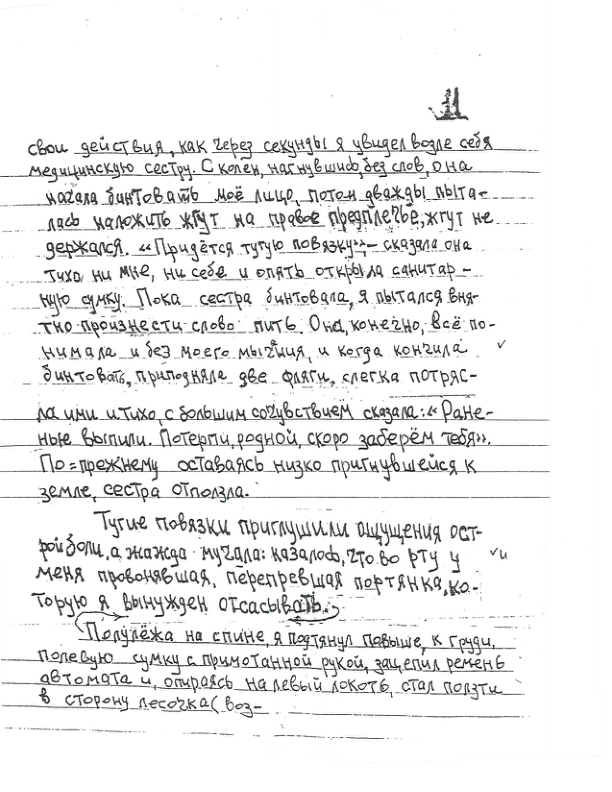 11
свои действия, как через секунды я увидел возле себя
медицинскую сестру. С колен, нагнувшись, без слов, она
начала бинтовать моё лицо, потом дважды пыта-
лась наложить жгут на правое предплечье, жгут не
держался. «Придётся тугую повязку», – сказала она
тихо ни мне, ни себе и опять открыла санитар-
ную сумку. Пока сестра бинтовала, я пытался вня-
тно произнести слово пить. Она, конечно, всё по-
нимала и без моего мычания, и когда кончила
бинтовать, приподняла две фляги, слегка потряс-
ла ими и тихо, с большим сочувствием сказала: «Ране-
ные выпили. Потерпи, родной, скоро заберём тебя».
По=прежнему оставаясь низко пригнувшейся к
земле, сестра отползла.
Тугие повязки приглушили ощущения ост-
рой боли, а жажда мучала: казалось, что во рту у
меня провонявшая, перепревшая портянка, ко-
торую я вынужден отсасывать.
Полулёжа на спине, я подтянул повыше, к груди,
полевую сумку с примотанной рукой, зацепил ремень
автомата и, опираясь на левый локоть, стал ползти
в сторону лесочка( воз-